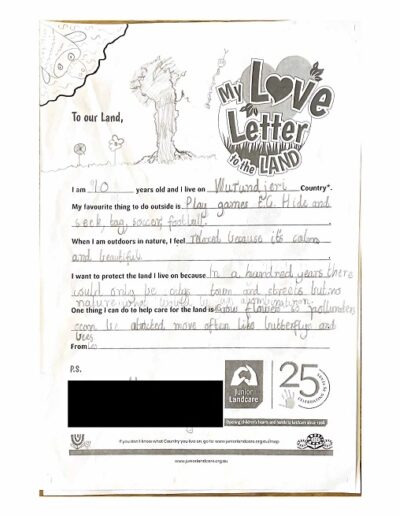 My Love
Letter
to the LAND
To our Land,
I am 10 years old and I live on Wurundjeri Country*.
My favourite thing to do outside is Play games E.G. Hide and
seek, tag, soccer, football.
When I am outdoors in nature, I feel relaxed because it's calm
and beautiful.
I want to protect the land I live on because In a hundred years there
could only be citys town and streets but no
nature what would be
One thing I can do to help care for the land is Grow flowers so pollinaters
can be atracted more often like butterflys and
bees
From
P.S.
Junior
Landcare
25
YEARS OF
CELEBRATING
Opening children's hearts and hands to landcare since 1998
*If you don't know what Country you live on, go to: www.juniorlandcare.org.au/map
www.juniorlandcare.org.au